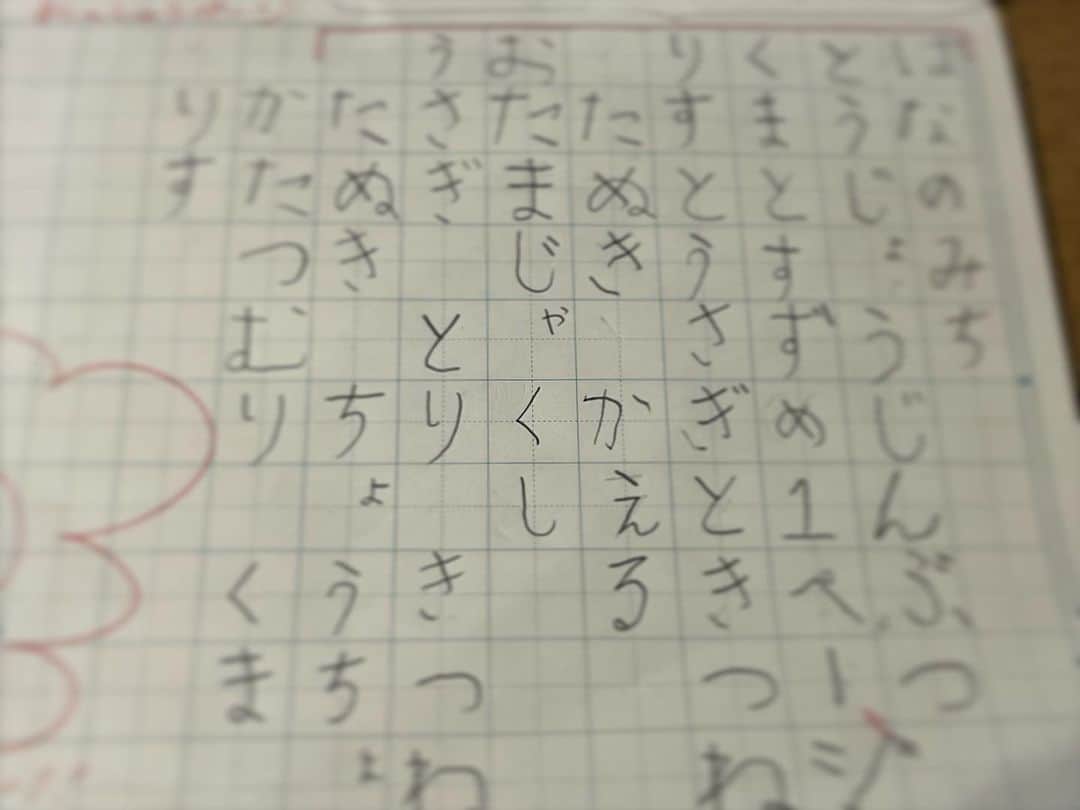 はなのみち
とうじょうじんぶつ
くまとすずめ1ぺージ
りすとうさぎときつね
たぬき かえる
おたまじゃくし
うさぎ とり きつね
たぬき ちょうちょ
かたつむり くま
りす